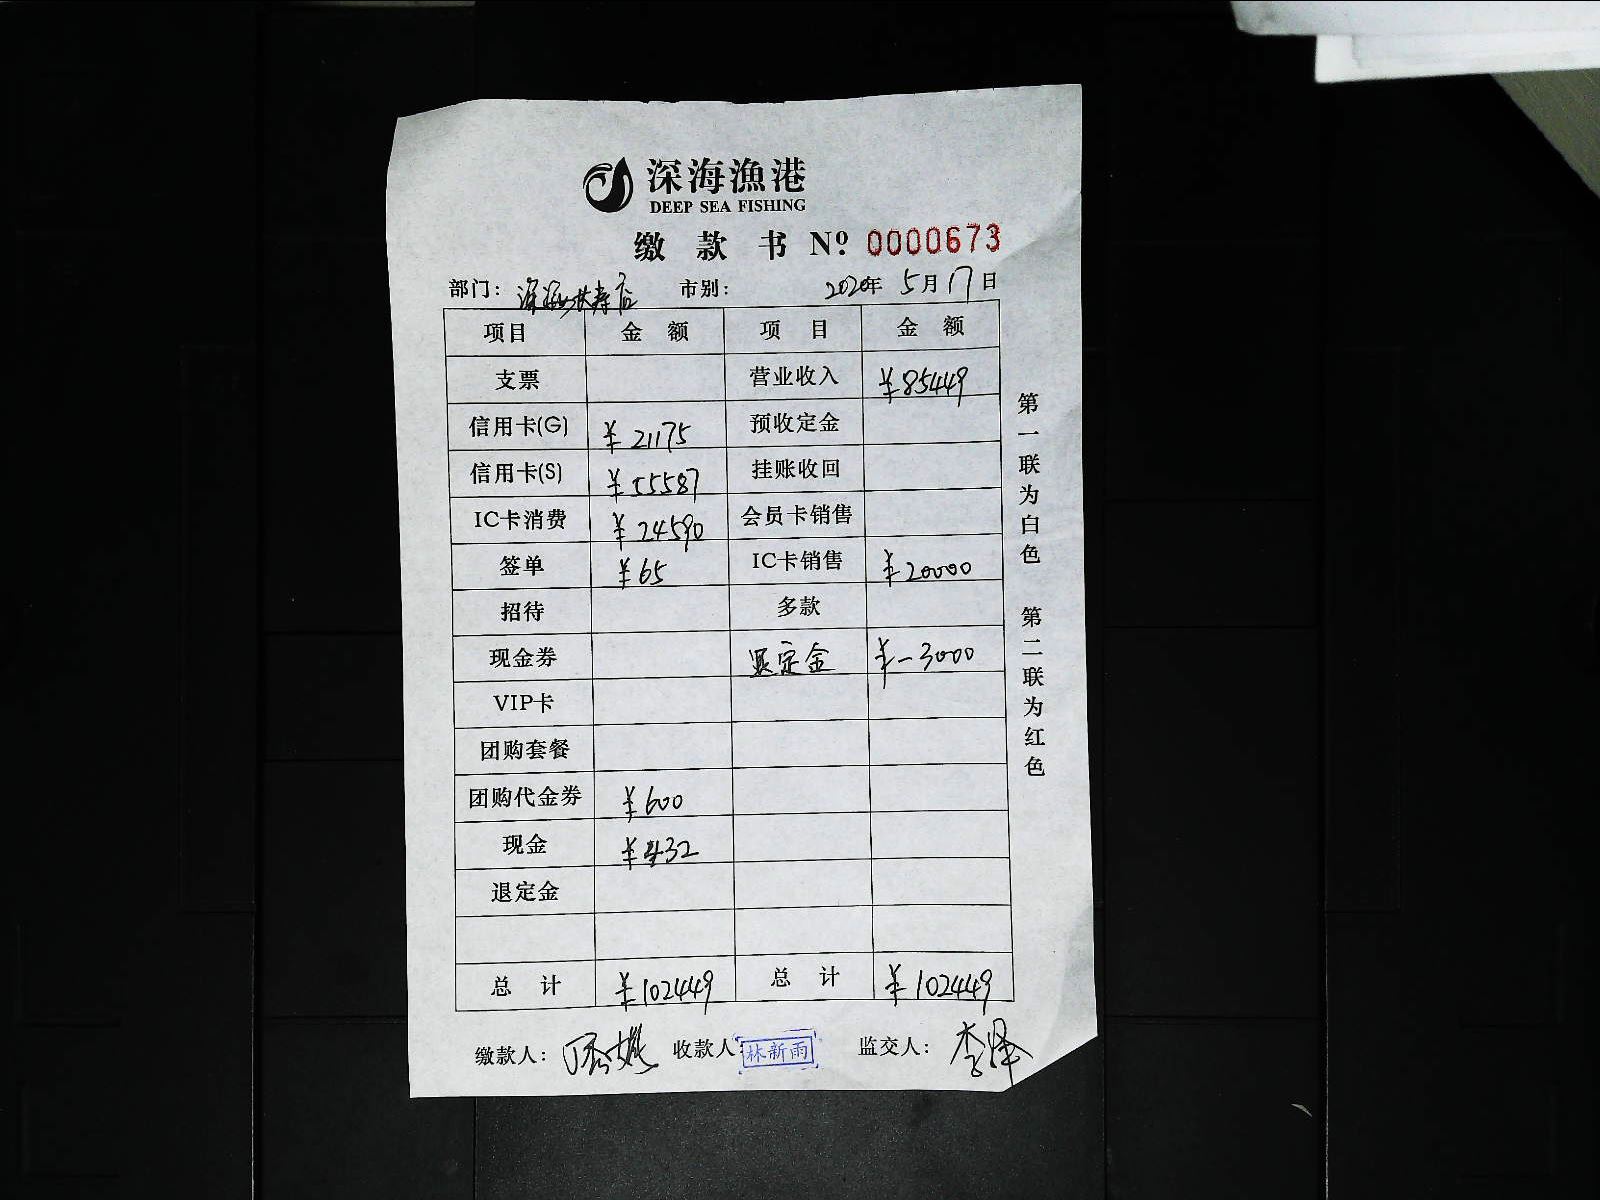 深海漁港
DEEP SEA FISHING
缴款书 Nº 0000673
部门： 市别： 2020年 5月17日
项目 金额 项目 金额
支票 营业收入 ¥85449
信用卡(G) ¥21175 预收定金
信用卡(S) ¥55587 挂账收回
IC卡消费 ¥24590 会员卡销售
签单 ¥65 IC卡销售 ¥20000
招待 多款
现金券 退定金 ¥-3000
VIP卡
团购套餐
团购代金券 ¥600
现金 ¥432
退定金
总计 ¥102449 总计 ¥102449
缴款人： 收款人： 林新雨 监交人： 李泽
第一联为白色 第二联为红色